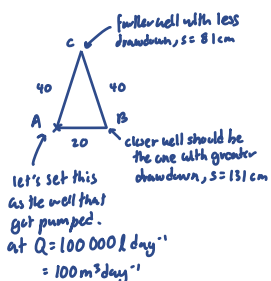 further well with less
drawdown, s = 81cm
C
40
40
A
B
20
closer well should be
the one with greater
drawdown, s = 131 cm
let's set this
as the well that
got pumped.
at Q = 100 000 l day⁻¹
= 100 m³ day⁻¹